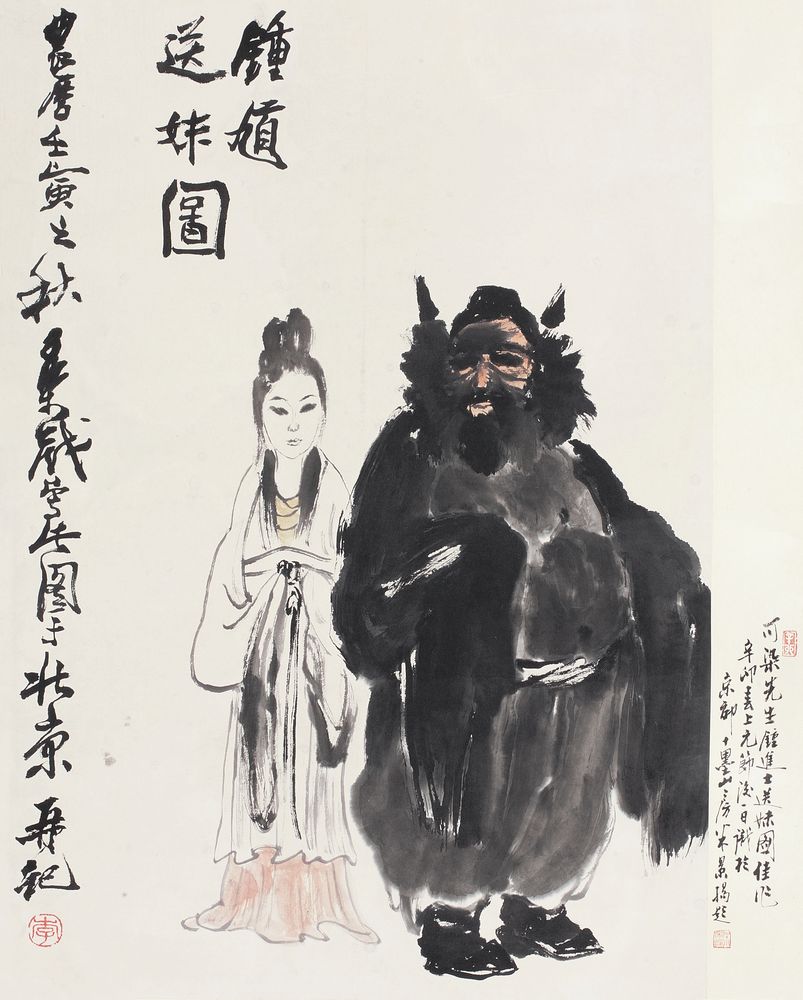 鍾馗
送妹圖
農曆壬寅之秋可染戲寫此圖于北京再記
李
可染先生鍾進士送妹圖佳作
辛卯春上元節後一日識於
京都十墨山房米景揚題